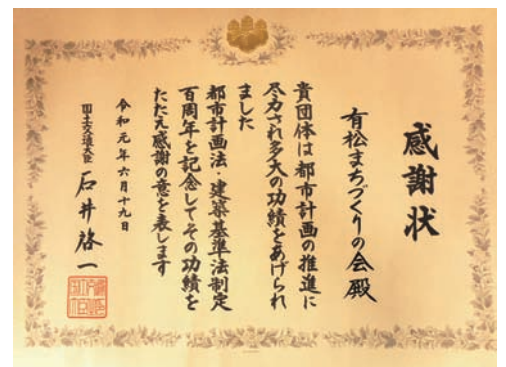 感謝状
有松まちづくりの会殿
貴団体は都市計画の推進に
尽力され多大の功績をあげられ
ました
都市計画法・建築基準法制定
百周年を記念してその功績を
たたえ感謝の意を表します
令和元年六月十九日
国土交通大臣 石井啓一